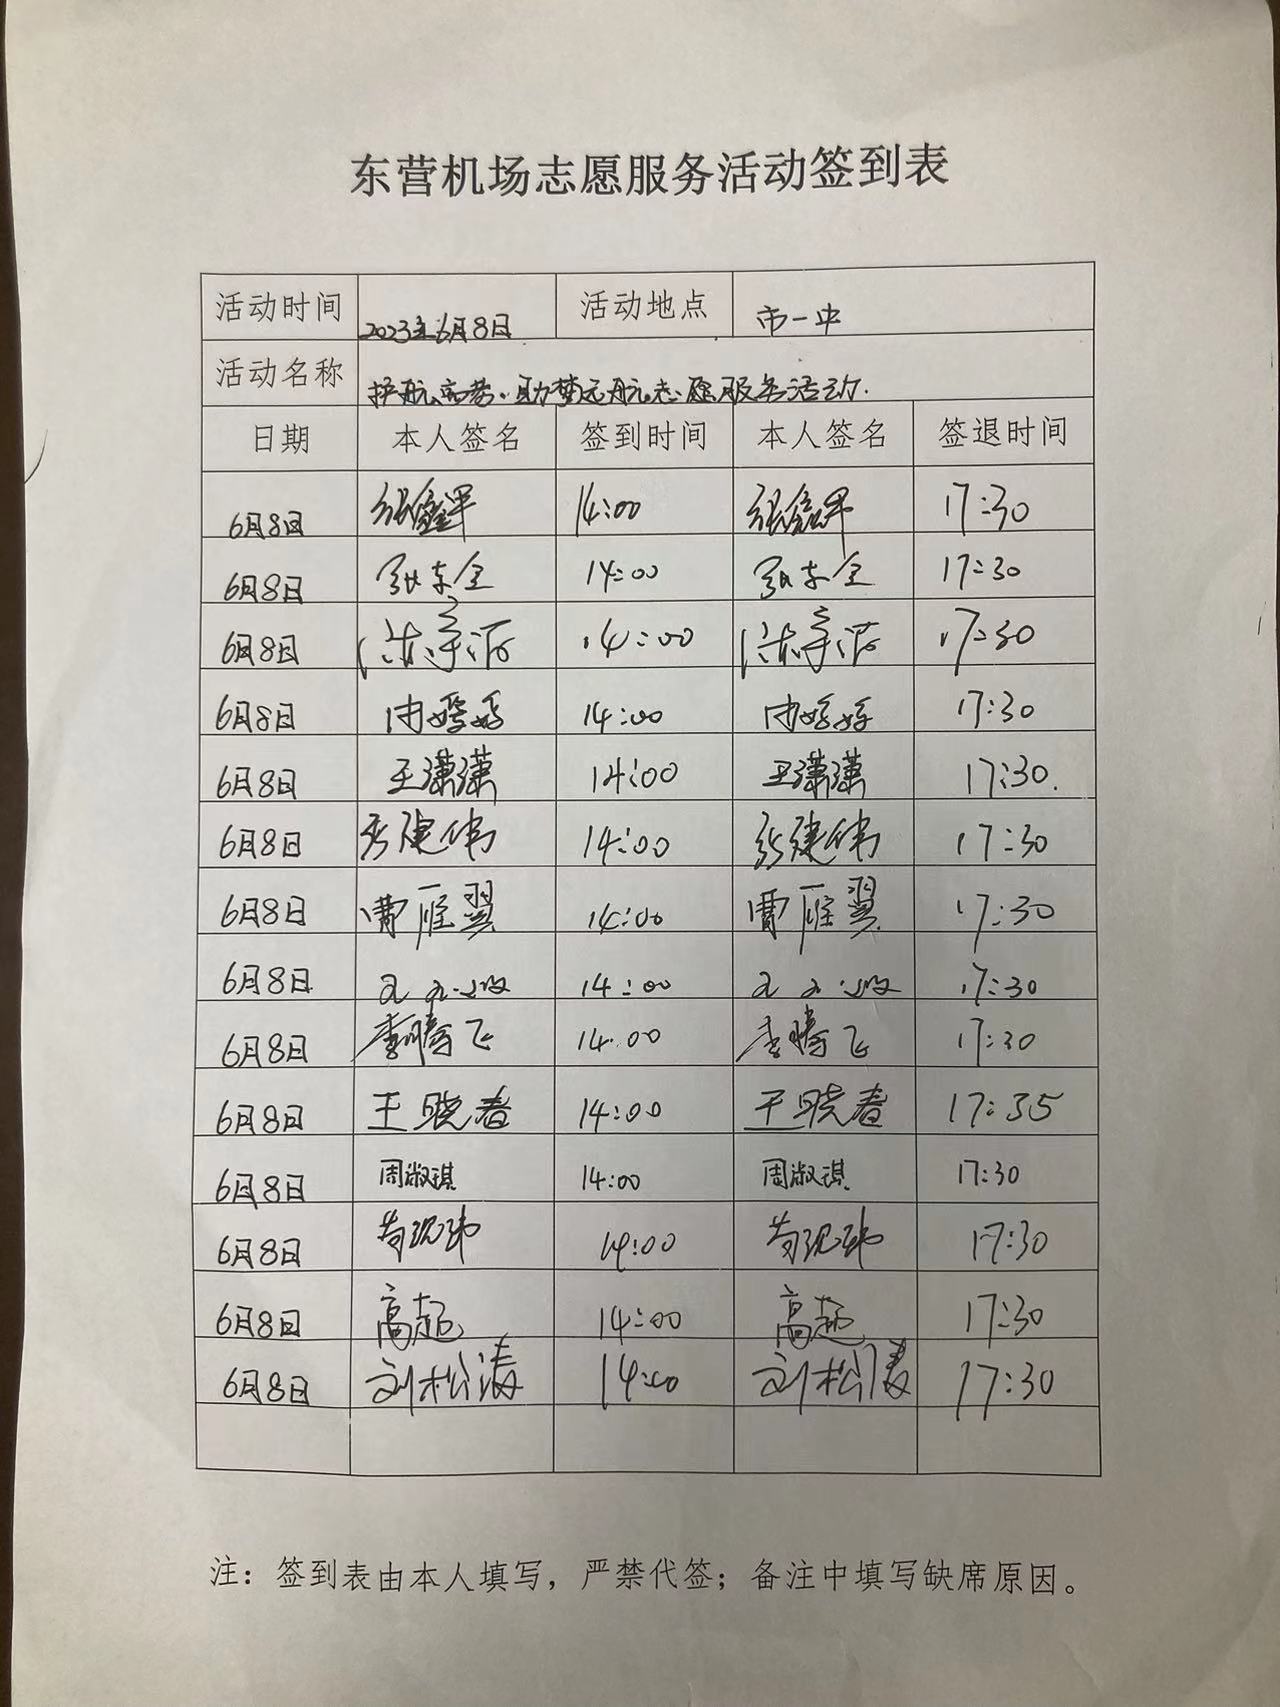 东营机场志愿服务活动签到表
活动时间 2023年6月8日 活动地点 市一中
活动名称 护航高考·助梦远航志愿服务活动.
日期 本人签名 签到时间 本人签名 签退时间
6月8日 14:00 17:30
6月8日 张东全 14:00 张东全 17:30
6月8日 14:00 17:30
6月8日 14:00 17:30
6月8日 王潇潇 14:00 王潇潇 17:30.
6月8日 张建伟 14:00 张建伟 17:30
6月8日 曹雁翼 14:00 曹雁翼 17:30
6月8日 14:00 17:30
6月8日 李腾飞 14:00 李腾飞 17:30
6月8日 王晓春 14:00 王晓春 17:35
6月8日 周淑琪 14:00 周淑琪 17:30
6月8日 14:00 17:30
6月8日 高超 14:00 高超 17:30
6月8日 刘松涛 14:00 刘松涛 17:30
注：签到表由本人填写，严禁代签；备注中填写缺席原因。